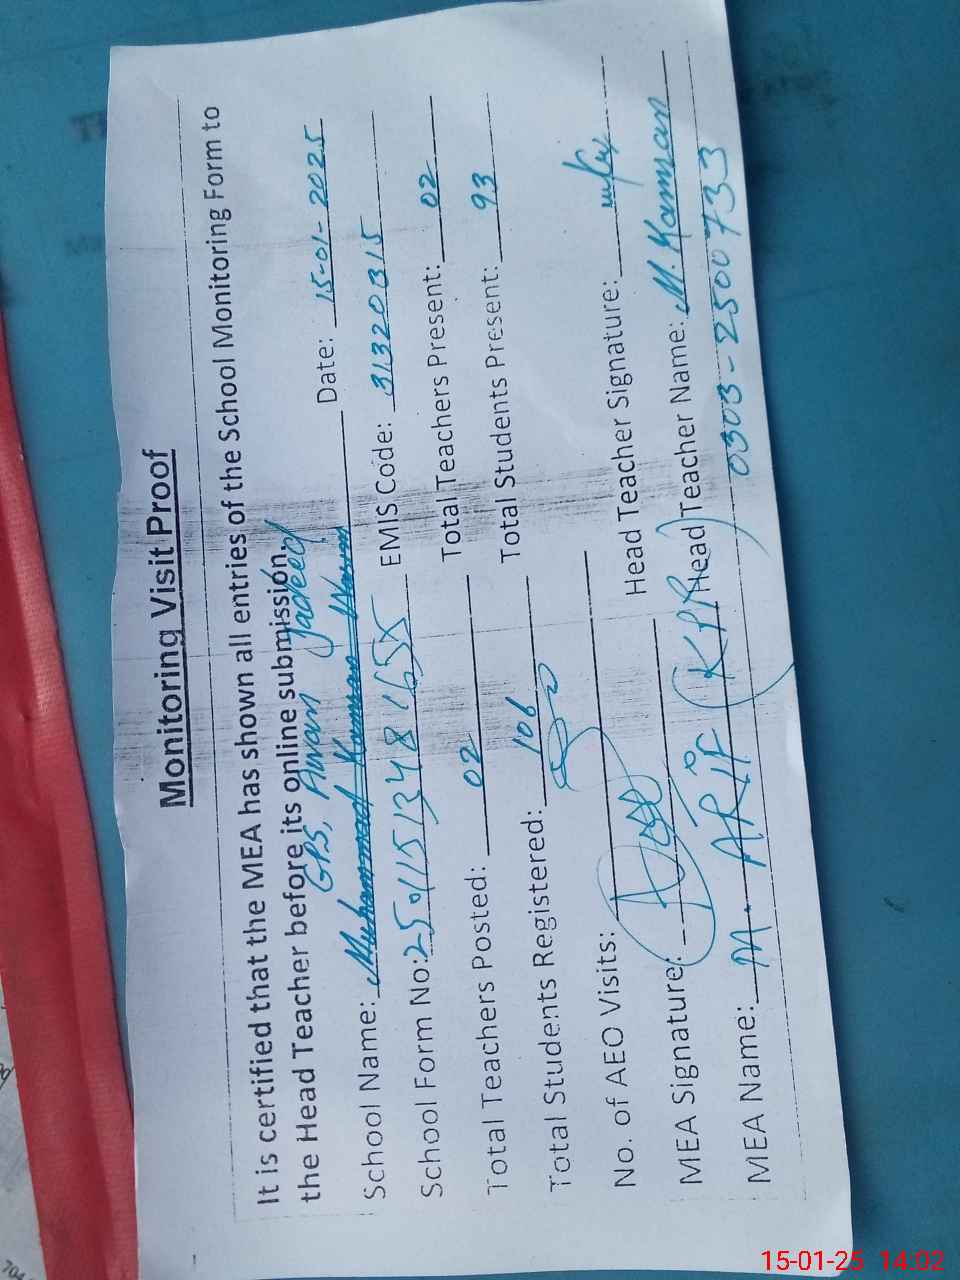 Monitoring Visit Proof
It is certified that the MEA has shown all entries of the School Monitoring Form to
the Head Teacher before its online submission.
GPS, Awan Jadeed
School Name: Muhammad Kamran Date: 15-01-2025
School Form No: EMIS Code: 31320315
Total Teachers Posted: 02 Total Teachers Present: 02
Total Students Registered: 106 Total Students Present: 93
No. of AEO Visits:
MEA Signature: Head Teacher Signature:
MEA Name: M. ARIF (KPR) Head Teacher Name: M. Kamran
0303-2500733
15-01-25 14:02